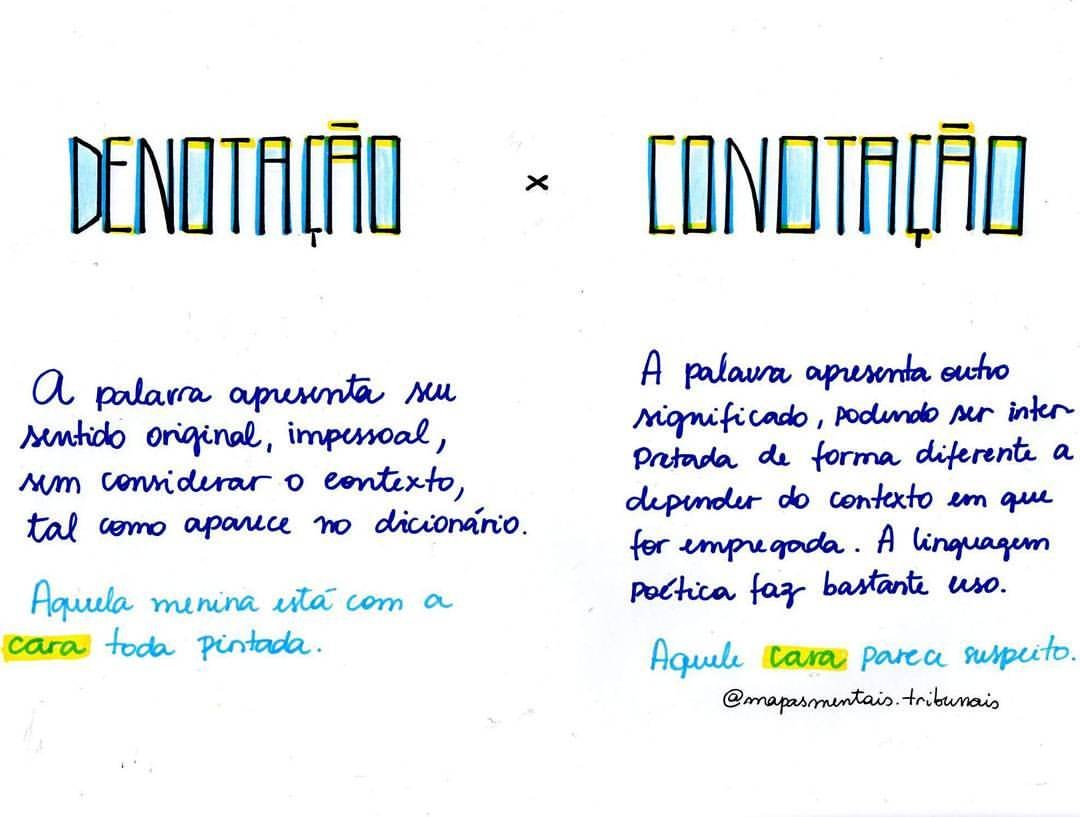 DENOTAÇÃO × CONOTAÇÃO
A palavra apresenta seu
sentido original, impessoal,
sem considerar o contexto,
tal como aparece no dicionário.
Aquela menina está com a
cara toda pintada.
A palavra apresenta outro
significado, podendo ser inter
pretada de forma diferente a
depender do contexto em que
for empregada. A linguagem
poética faz bastante uso.
Aquele cara parece suspeito.
@mapasmentais.tribunais